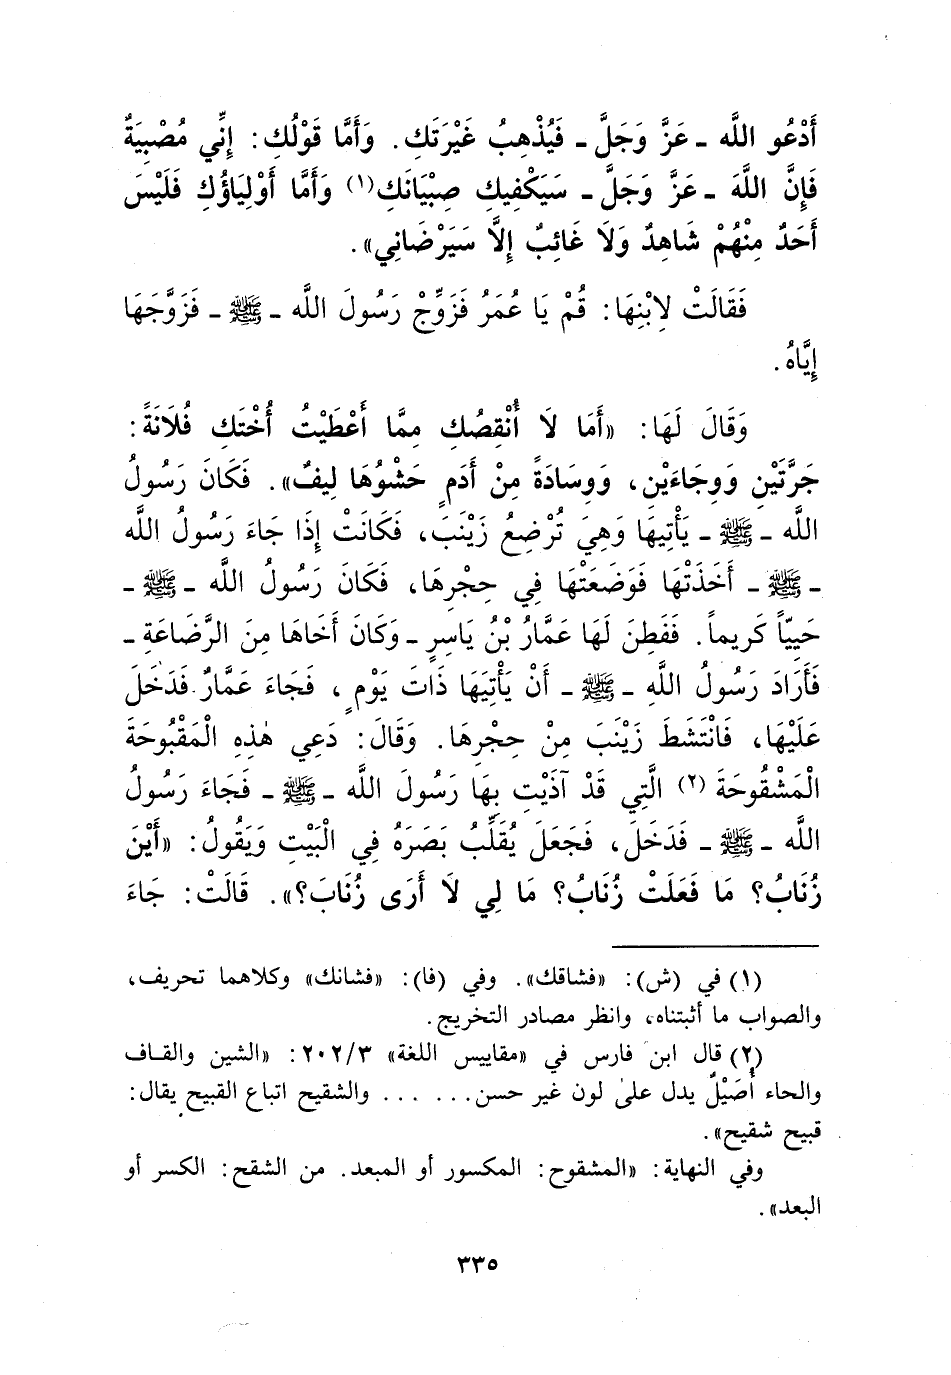 أَدْعُو اللَّه ـ عَزَّ وَجَلَّ ـ فَيُذْهِبُ غَيْرَتَكِ. وَأَمَّا قَوْلُكِ: إِنِّي مُصْبِيَةٌ
فَإِنَّ اللَّهَ ـ عَزَّ وَجَلَّ ـ سَيَكْفِيكِ صِبْيَانَكِ(١) وَأَمَّا أَوْلِيَاؤُكِ فَلَيْسَ
أَحَدٌ مِنْهُمْ شَاهِدٌ وَلَا غَائِبٌ إِلَّا سَيَرْضَانِي».
فَقَالَتْ لِابْنِهَا: قُمْ يَا عُمَرُ فَزَوِّجْ رَسُولَ اللَّه ـ ﷺ ـ فَزَوَّجَهَا
إِيَّاهُ.
وَقَالَ لَهَا: «أَمَا لَا أُنْقِصُكِ مِمَّا أَعْطَيْتُ أُخْتَكِ فُلَانَةً:
جَرَّتَيْنِ وَوِجَاءَيْنِ، وَوِسَادَةً مِنْ أَدَمٍ حَشْوُهَا لِيفٌ». فَكَانَ رَسُولُ
اللَّه ـ ﷺ ـ يَأْتِيهَا وَهِيَ تُرْضِعُ زَيْنَبَ، فَكَانَتْ إِذَا جَاءَ رَسُولُ اللَّه
ـ ﷺ ـ أَخَذَتْهَا فَوَضَعَتْهَا فِي حِجْرِهَا، فَكَانَ رَسُولُ اللَّه ـ ﷺ ـ
حَيِيّاً كَرِيماً. فَفَطِنَ لَهَا عَمَّارُ بْنُ يَاسِرٍ ـ وَكَانَ أَخَاهَا مِنَ الرَّضَاعَةِ ـ
فَأَرَادَ رَسُولُ اللَّهِ ـ ﷺ ـ أَنْ يَأْتِيَهَا ذَاتَ يَوْمٍ، فَجَاءَ عَمَّارٌ فَدَخَلَ
عَلَيْهَا، فَانْتَشَطَ زَيْنَبَ مِنْ حِجْرِهَا. وَقَالَ: دَعِي هٰذِهِ الْمَقْبُوحَةَ
الْمَشْقُوحَةَ (٢) الَّتِي قَدْ آذَيْتِ بِهَا رَسُولَ اللَّه ـ ﷺ ـ فَجَاءَ رَسُولُ
اللَّه ـ ﷺ ـ فَدَخَلَ، فَجَعَلَ يُقَلِّبُ بَصَرَهُ فِي الْبَيْتِ وَيَقُولُ: «أَيْنَ
زُنَابُ؟ مَا فَعَلَتْ زُنَابُ؟ مَا لِي لَا أَرَى زُنَابَ؟». قَالَتْ: جَاءَ
(١) في (ش): «فشاقك». وفي (فا): «فشانك» وكلاهما تحريف،
والصواب ما أثبتناه، وانظر مصادر التخريج.
(٢) قال ابن فارس في «مقاييس اللغة» ٢٠٢/٣: «الشين والقاف
والحاء أُصَيْلٌ يدل على لون غير حسن... ... والشقيح اتباع القبيح يقال:
قبيح شقيح».
وفي النهاية: «المشقوح: المكسور أو المبعد. من الشقح: الكسر أو
البعد».
٣٣٥